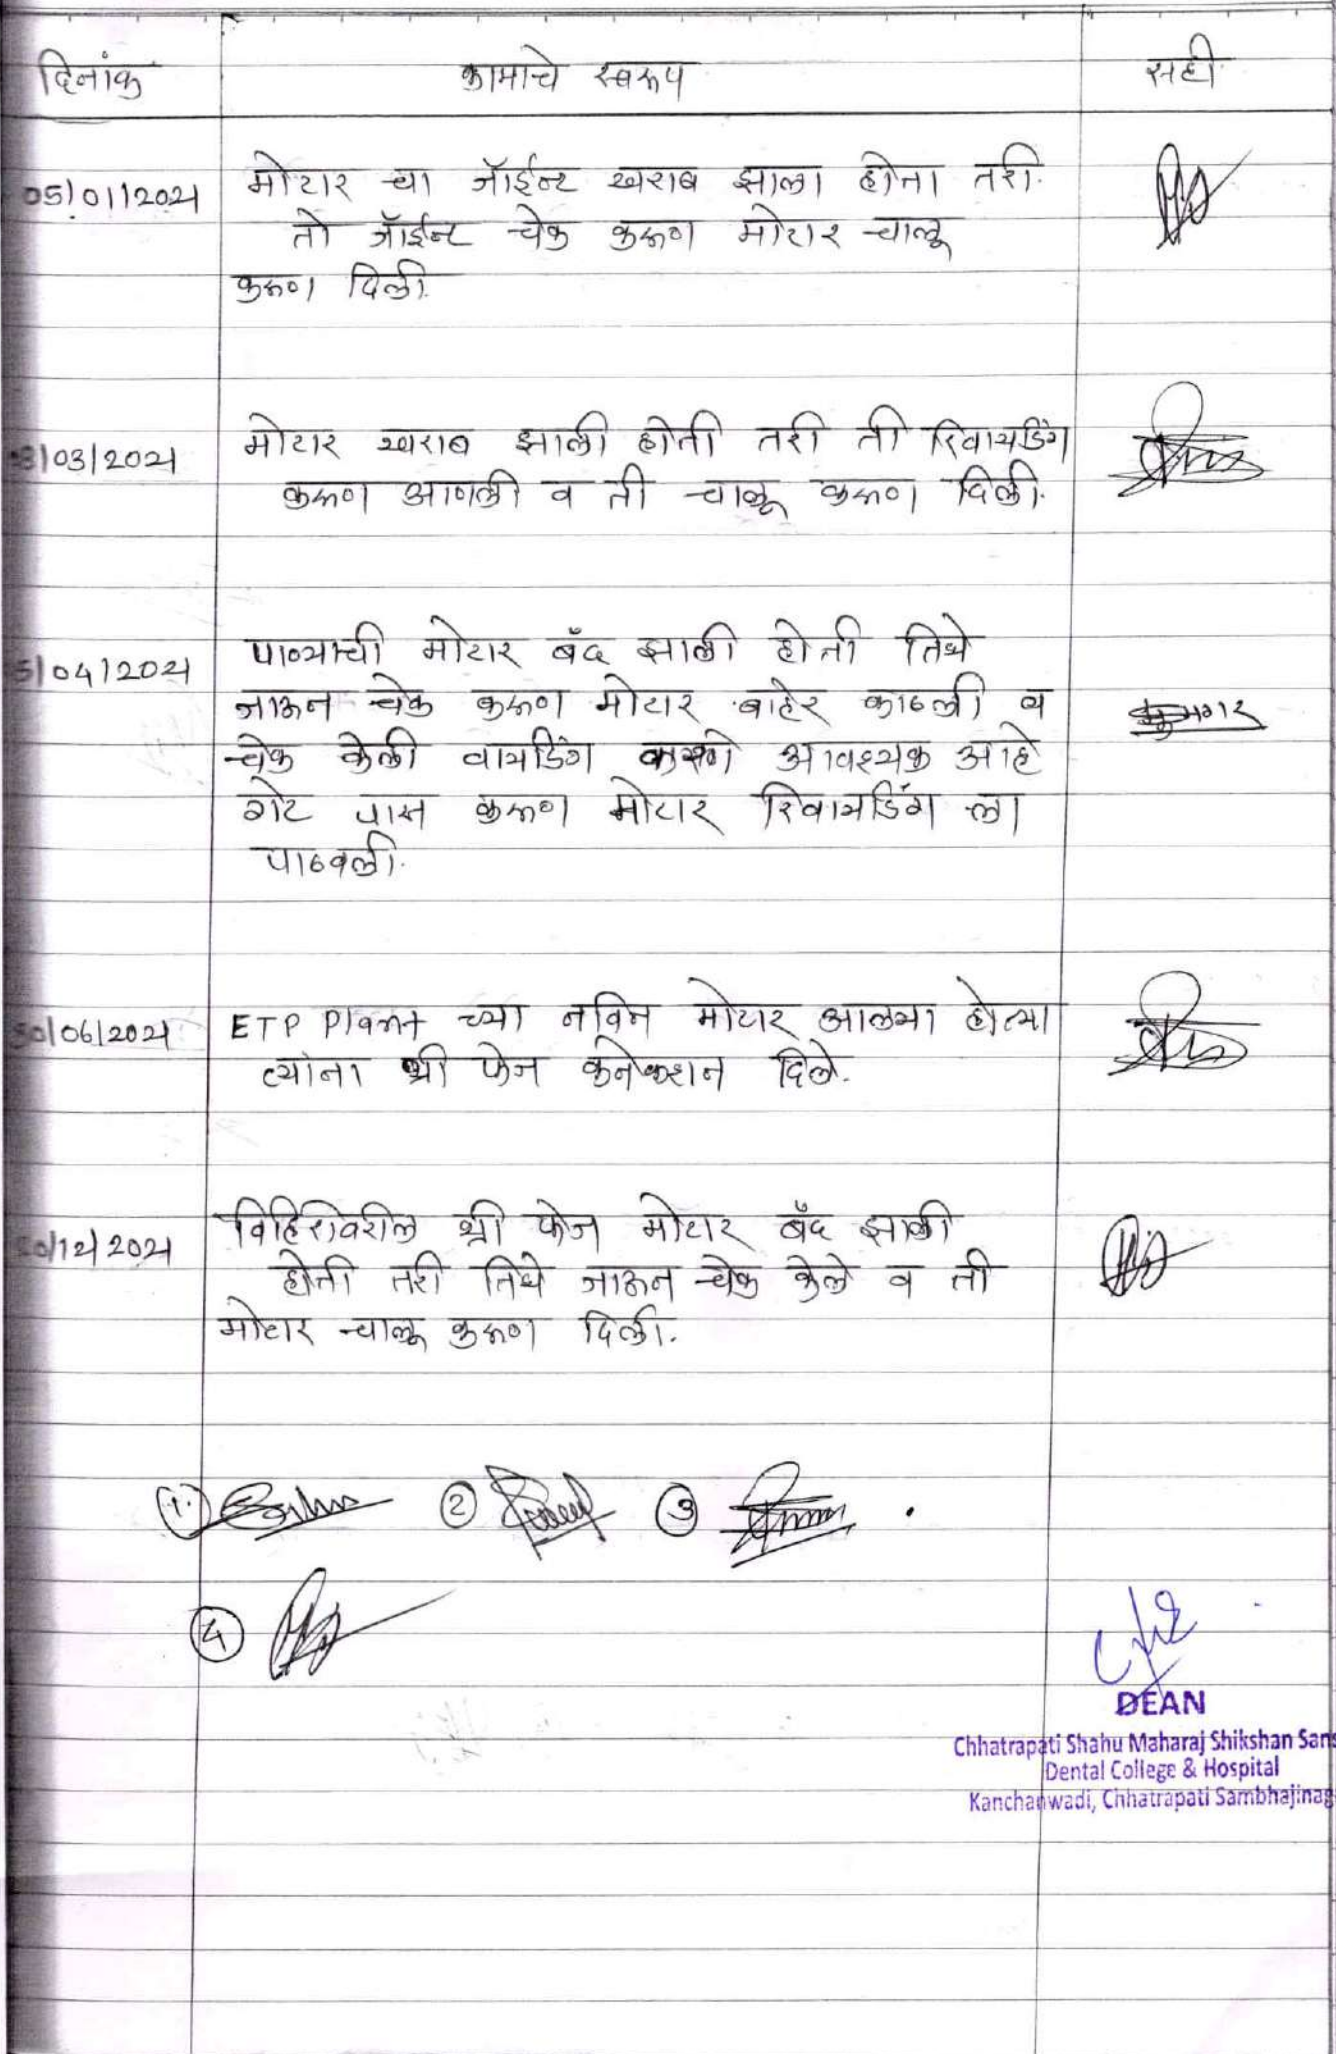 दिनांक कामाचे स्वरूप सही
05/01/2021 मोटार चा जॉईन्ट खराब झाला होता तरी.
तो जॉईन्ट चेक करूण मोटार चालू
करूण दिली.
3/03/2021 मोटार खराब झाली होती तरी ती रिवायडिंग
करूण आणली व ती चालू करूण दिली.
5/04/2021 पाण्याची मोटार बँद झाली होती तिथे
जाऊन चेक करूण मोटार बाहेर काढली व
चेक केली वायडिंग करणे आवश्यक आहे
गेट पास करूण मोटार रिवायडिंग ला
पाठवली.
30/06/2021 ETP Plant च्या नविन मोटार आलया होत्या
त्यांना थ्री फेज कनेक्शन दिले.
20/12/2021 विहिरीवरील थ्री फेज मोटार बँद झाली
होती तरी तिथे जाऊन चेक केले व ती
मोटार चालू करूण दिली.
1 2 3
4
DEAN
Chhatrapati Shahu Maharaj Shikshan Sans
Dental College & Hospital
Kanchanwadi, Chhatrapati Sambhajinag